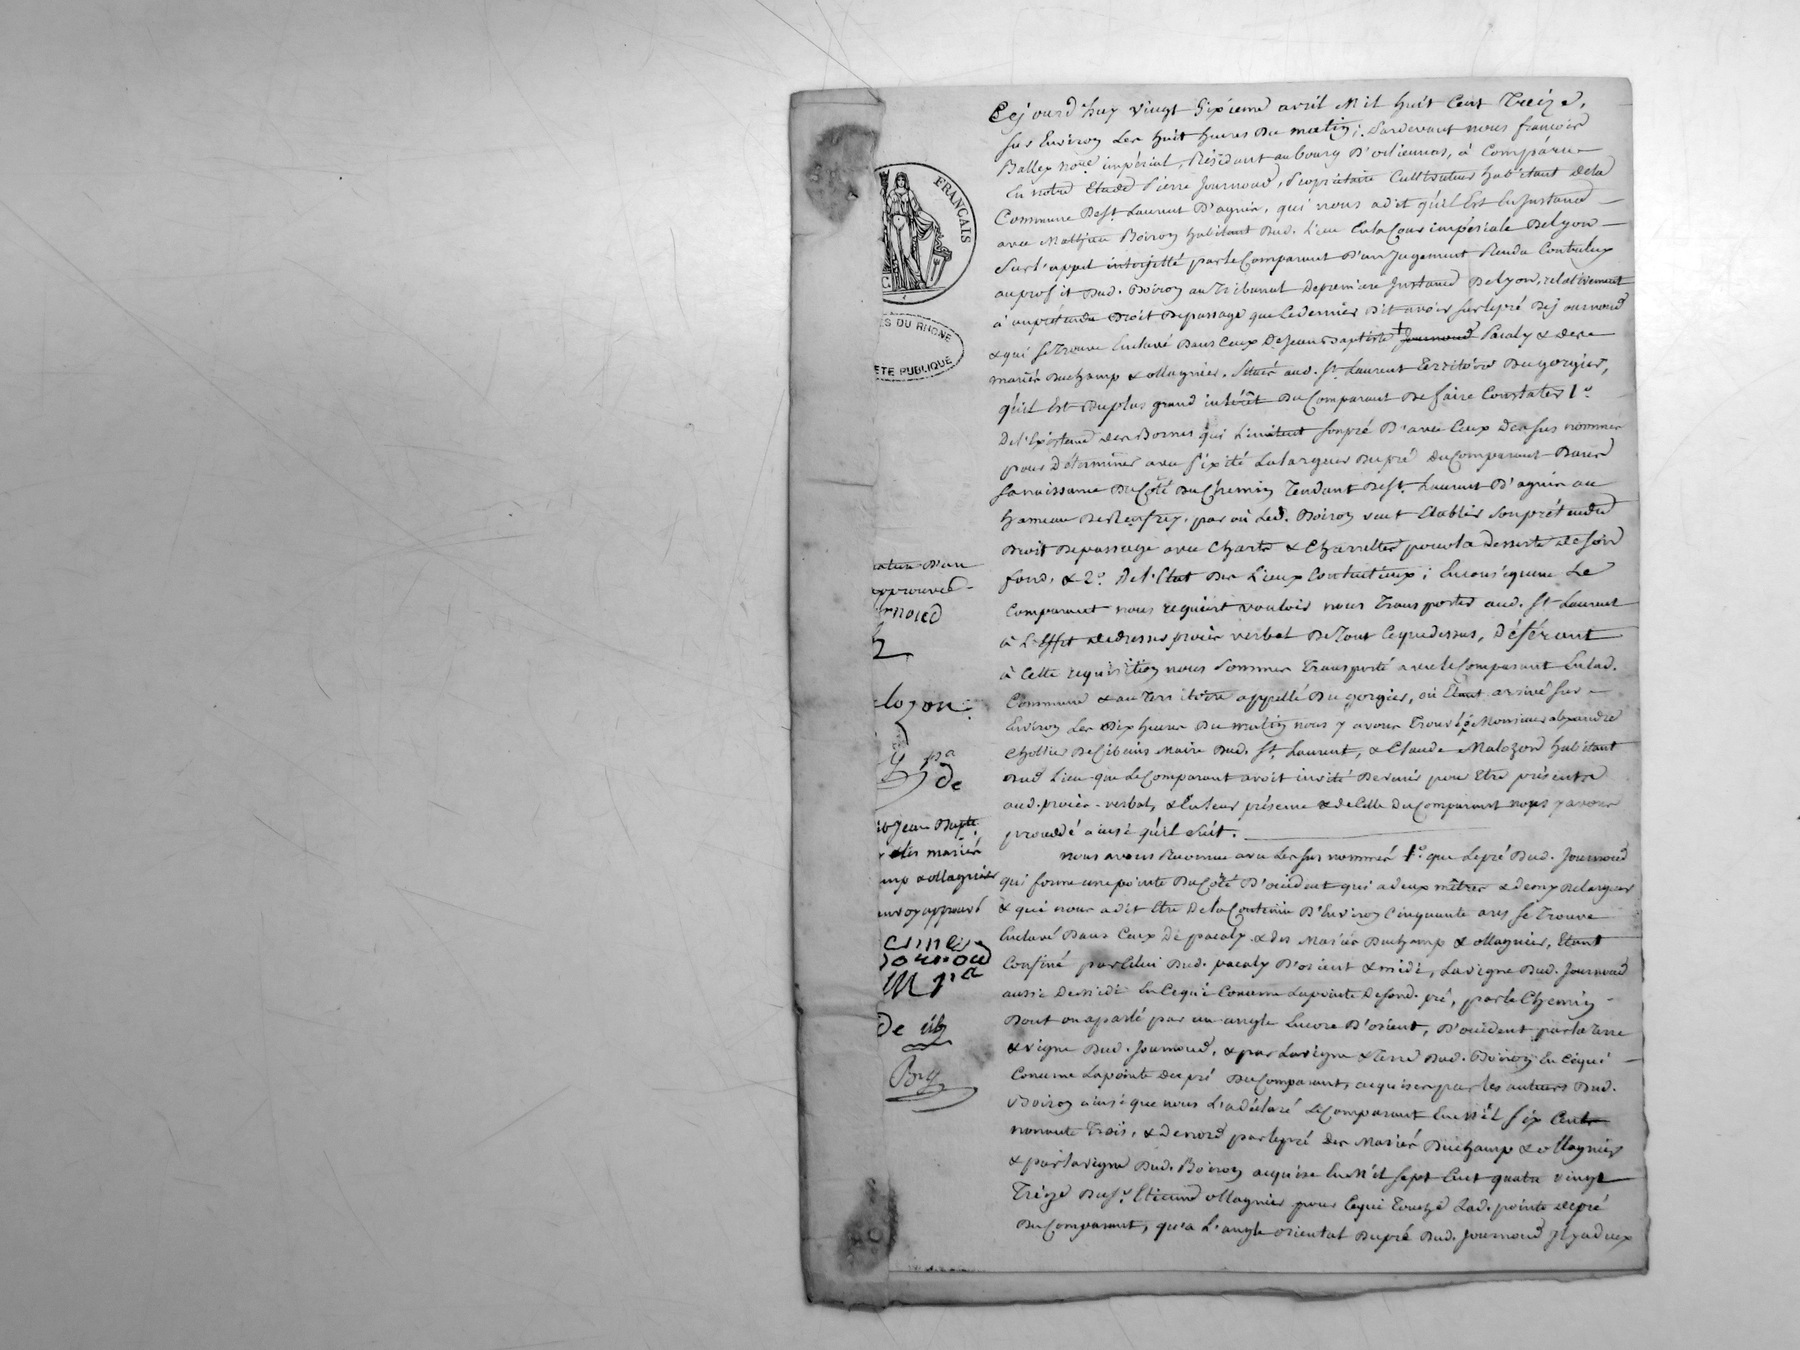 FRANÇAIS
ES DU RHONE
ETE PUBLIQUE
Cejourd'huy vingt sixieme avril Mil huit Cent Treize,
sur Environ les huit heures du matin; Pardevant nous françois
Balley no.re impérial, Résidant au bourg d'orlienas, à Comparu
En notre Etude Pierre Journoud, Propriétaire Cultivateur habitant dela
Commune de St. Laurent D'agnin, qui nous a dit qu'il Est En Instance
avec Mathieu Boiron habitant dud. Lieu En la Cour impériale De Lyon
Sur l'appel interjetté par le Comparant D'un Jugement Rendu Contre lux
au profit dud. Boiron au Tribunal de premiere Instance De Lyon, relativement
à un prétendu Droit De passage que le dernier dit avoir sur le pré Dej ournoud
& qui se Trouve Enclavé Dans Ceux De Jean Baptiste + Journoud Pacaly & de
mariés Duchamp & ollagnier. Situés aud. St. Laurent Territoire Du gorgier,
qu'il Est Du plus grand intérêt Du Comparant De faire Constater 1.o
De l'Existence des Bornes qui Limitent son pré D'avec Ceux des sus nommés
pour Déterminer avec fixité La largeur Du pré Du Comparant Dans
sa naissance Du Côté Du Chemin Tendant De St. Laurent D'agnin au
hameau par où Led. Boiron veut Etablir son prétendu
Droit De passage avec Chars & Charrettes pour la desserte de son
fond, & 2.o De l'Etat Des Lieux Contentieux; En conséquence Le
Comparant nous requiert vouloir nous Transporter aud. St Laurent
à L'Effet de dresser procès verbal De Tout Ce que dessus, Déférant
à Cette requisition nous sommes Transporté avec le Comparant En lad.
Commune & au Territoire appellé Du gorgier, où Etant arrivé sur
Environ Les Dix heures Du matin nous y avons Trouvé Monsieur alexandre
Chollier De Cibeins Maire Dud. St. Laurent, & Claude Malozon habitant
dud Lieu que Le Comparant avoit invité De venir pour Etre présents
aud. procès-verbal, & En leur présence & de Celle Du Comparant nous y avons
procedé ainsi qu'il suit.
nous avons Reconnu avec Les sus nommés 1.o que Le pré Dud. Journoud
qui forme une pointe Du Côté D'occident qui a deux mètres & demy De largeur
& qui nous a dit Etre De la Contenue D'Environ Cinquante ares se Trouve
Enclavé Dans Ceux De pacaly & des Mariés Duchamp & ollagnier, Etant
Confiné par Celui Dud. pacaly D'orient & midi, La vigne Dud. Journoud
aussi De midi En Ce qui Concerne La pointe De sond. pré, par le Chemin
Dont on a parlé par un angle Encore D'orient, D'occident par la Terre
& vigne Dud. Journoud, & par La vigne & terre Dud. Boiron En Ce qui
Concerne La pointe Du pré Du Comparant, acquises par les auteurs Dud.
Boiron ainsi que nous L'a déclaré Le Comparant En Mil six Cents
nonante Trois, & de nord par le pré Des Mariés Duchamp & ollagnier
& par la vigne Dud. Boiron acquise En Mil sept Cent quatre vingt
Treize Du Sr. Etienne ollagnier pour Ce qui Touche Lad. pointe de pré
Du Comparant, qu'a L'angle oriental Du pré Dud. Journoud il y a deux
ature d'un
approuvée
rnoud
lozon
pa
de
Jean Bapte
des mariés
amp & ollagnier
nvoy approuvé
Journoud
M pa
de cib
Bry